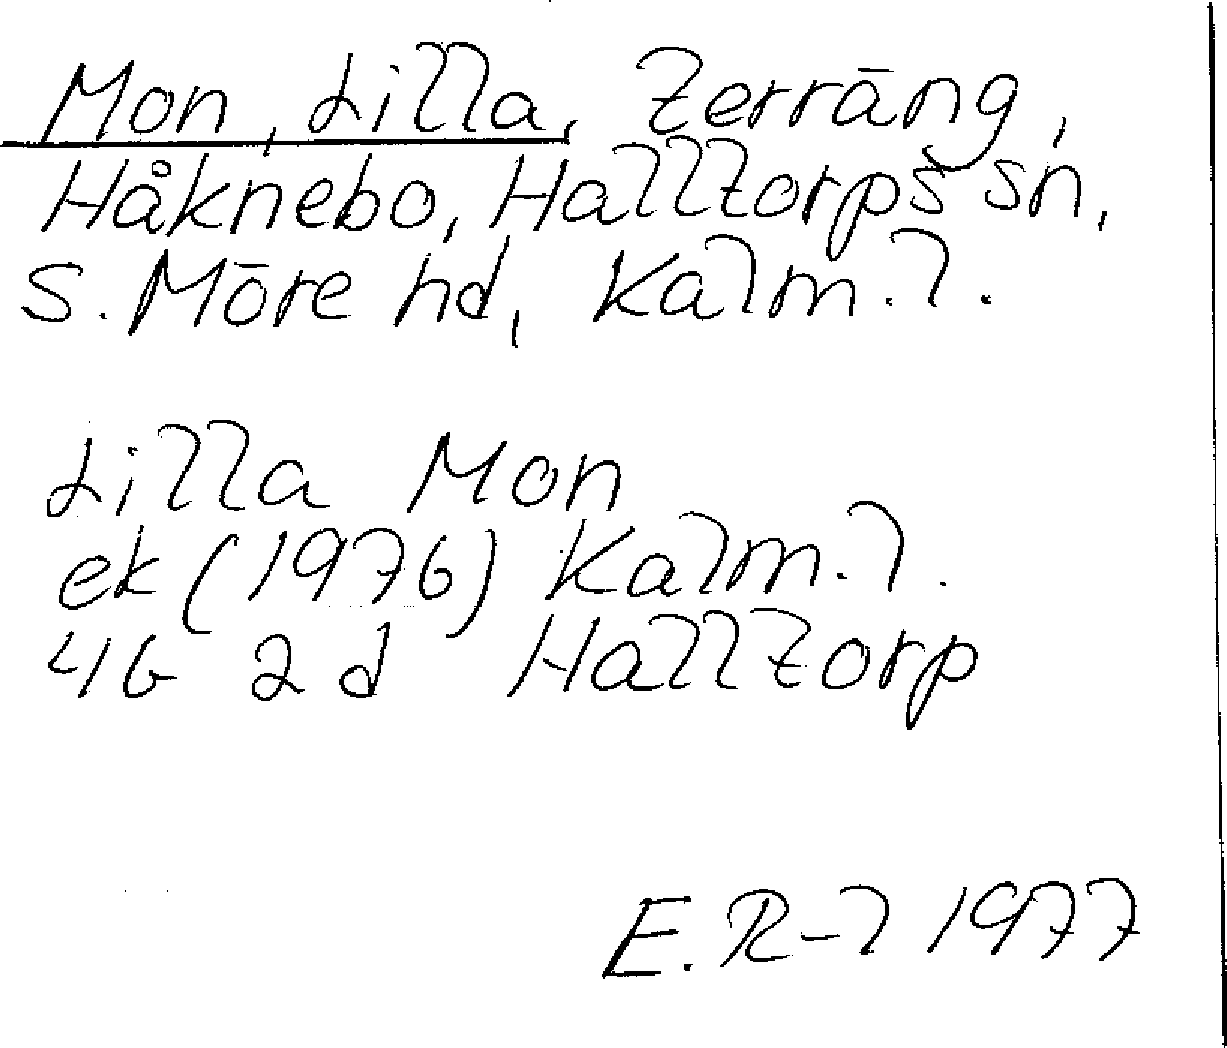 Mon, Lilla, terräng,
Håknebo, Halltorps sn,
S. Möre hd, Kalm. l.
Lilla Mon
ek (1976) Kalm. l.
4G 2d Halltorp
E. R-l 1977